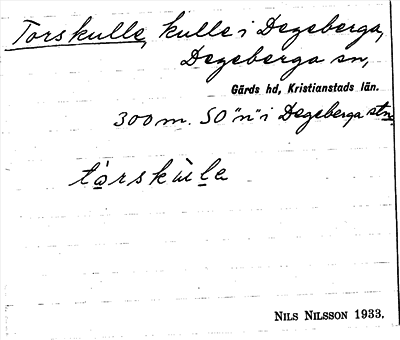 Torskulle, kulle i Degeberga,
Degeberga sn,
Gärds hd, Kristianstads län.
300 m. SO "n" i Degeberga stn.
tòrskùle
NILS NILSSON 1933.